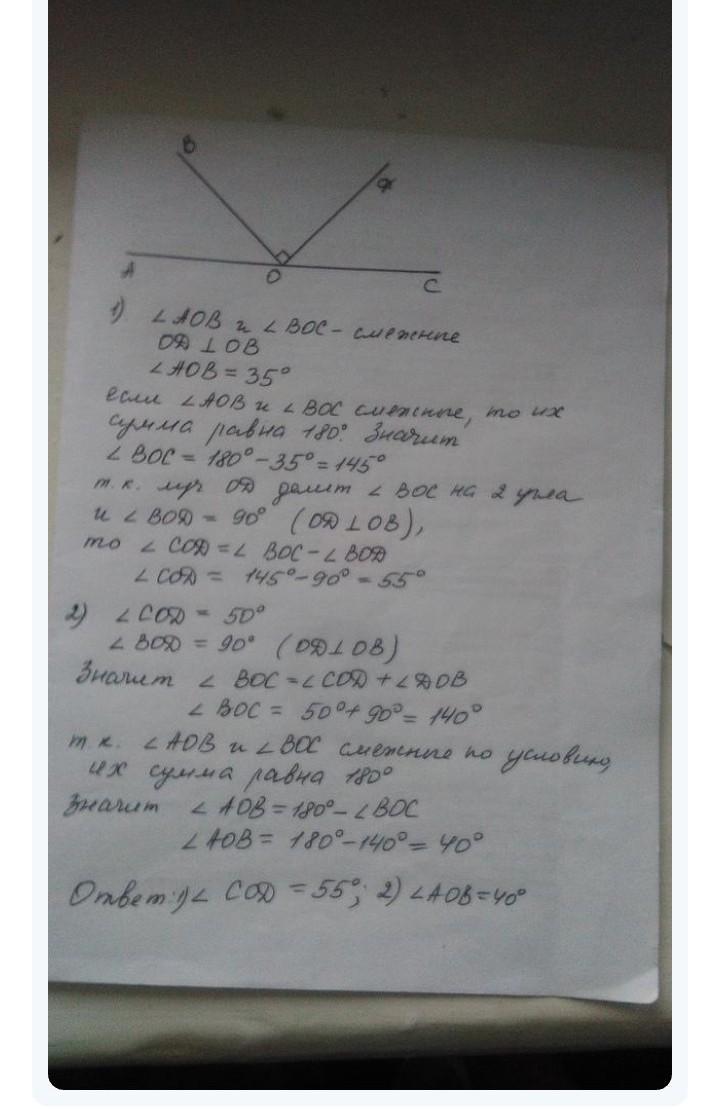 B
D
A
O
C
1) ∠AOB и ∠BOC - смежные
OD ⊥ OB
∠AOB = 35°
если ∠AOB и ∠BOC смежные, то их
сумма равна 180°. Значит
∠BOC = 180° - 35° = 145°
т.к. луч OD делит ∠BOC на 2 угла
и ∠BOD = 90° (OD ⊥ OB),
то ∠COD = ∠BOC - ∠BOD
∠COD = 145° - 90° = 55°
2) ∠COD = 50°
∠BOD = 90° (OD ⊥ OB)
Значит ∠BOC = ∠COD + ∠DOB
∠BOC = 50° + 90° = 140°
т.к. ∠AOB и ∠BOC смежные по условию,
их сумма равна 180°
Значит ∠AOB = 180° - ∠BOC
∠AOB = 180° - 140° = 40°
Ответ: 1) ∠COD = 55°; 2) ∠AOB = 40°